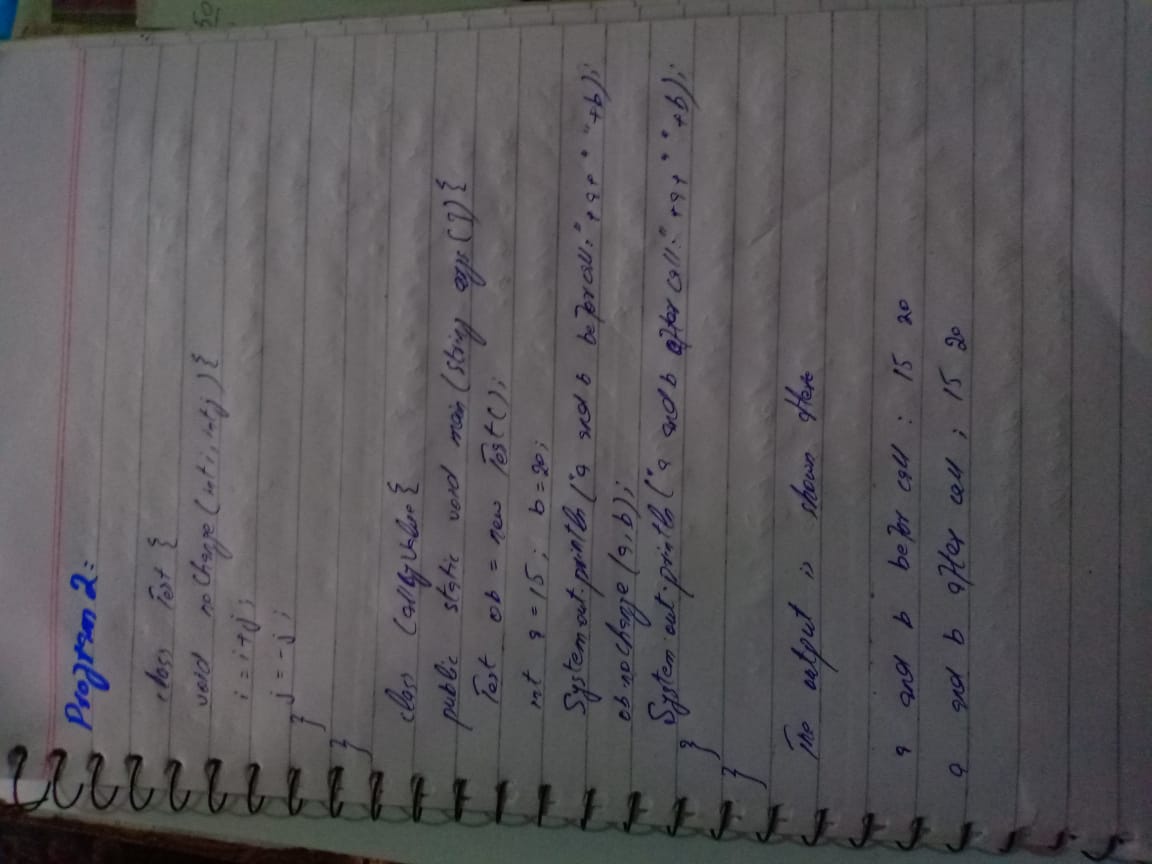 50
Program 2:
class Test {
void nochange (int i, int j) {
i = i + j;
j = - j;
}
}
class CallByValue {
public static void main (string args []) {
Test ob = new Test ();
int a = 15; b = 20;
System.out.println ("a and b before call:" + a + " " + b);
ob.nochange (a, b);
System.out.println ("a and b after call:" + a + " " + b);
}
}
The output is shown
a and b before call : 15 20
a and b after call ; 15 20